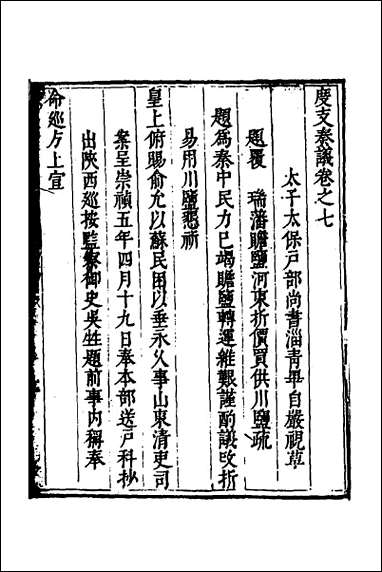 度支奏議卷之七
太子太保戶部尚書淄青畢自嚴視草
題覆 瑞藩贍鹽河東折價買供川鹽疏
題為秦中民力已竭贍鹽轉運維艱謹酌議改折
易用川鹽懇祈
皇上俯賜俞允以蘇民困以垂永久事山東清吏司
案呈崇禎五年四月十九日奉本部送戶科抄
出陝西巡按監察御史吳甡題前事内稱奉
命巡方上宣